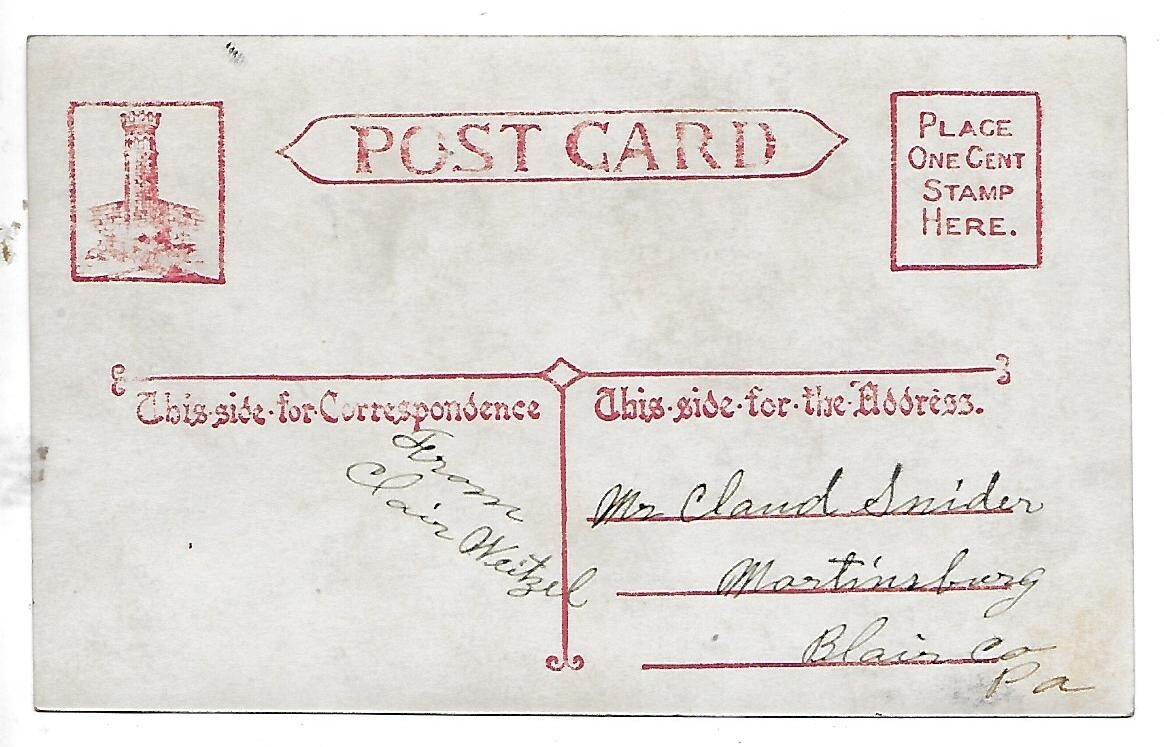 POST CARD
PLACE
ONE CENT
STAMP
HERE.
This·side·for·Correspondence
This·side·for·the·Address.
From
Clair Weitzel
Mr Claud Snider
Martinsburg
Blair Co
Pa